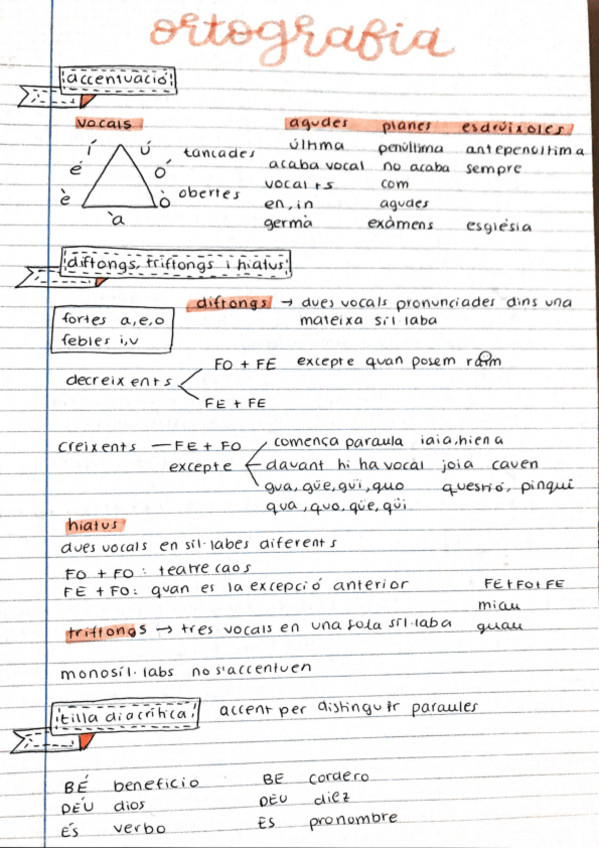 ortografia
accentuació
vocals agudes planes esdrúixoles
í ú tancades última penúltima antepenúltima
é ó acaba vocal no acaba sempre
è ò obertes vocal + s com
à en, in agudes
germà exàmens església
diftongs, triftongs i hiatus
diftongs → dues vocals pronunciades dins una
mateixa síl·laba
fortes a, e, o
febles i, u
decreixents FO + FE excepte quan posem raïm
FE + FE
creixents — FE + FO comença paraula iaia, hiena
excepte davant hi ha vocal joia cauen
gua, güe, güi, guo qüestió, pingüí
qua, quo, qüe, qüi
hiatus
dues vocals en síl·labes diferents
FO + FO: teatre caos
FE + FO: quan es la excepció anterior FE+FO+FE
miau
triftongs → tres vocals en una sola síl·laba guau
monosíl·labs no s'accentuen
titlla diacrítica: accent per distinguir paraules
BÉ beneficio BE cordero
DÉU dios DEU diez
ÉS verbo ES pronombre